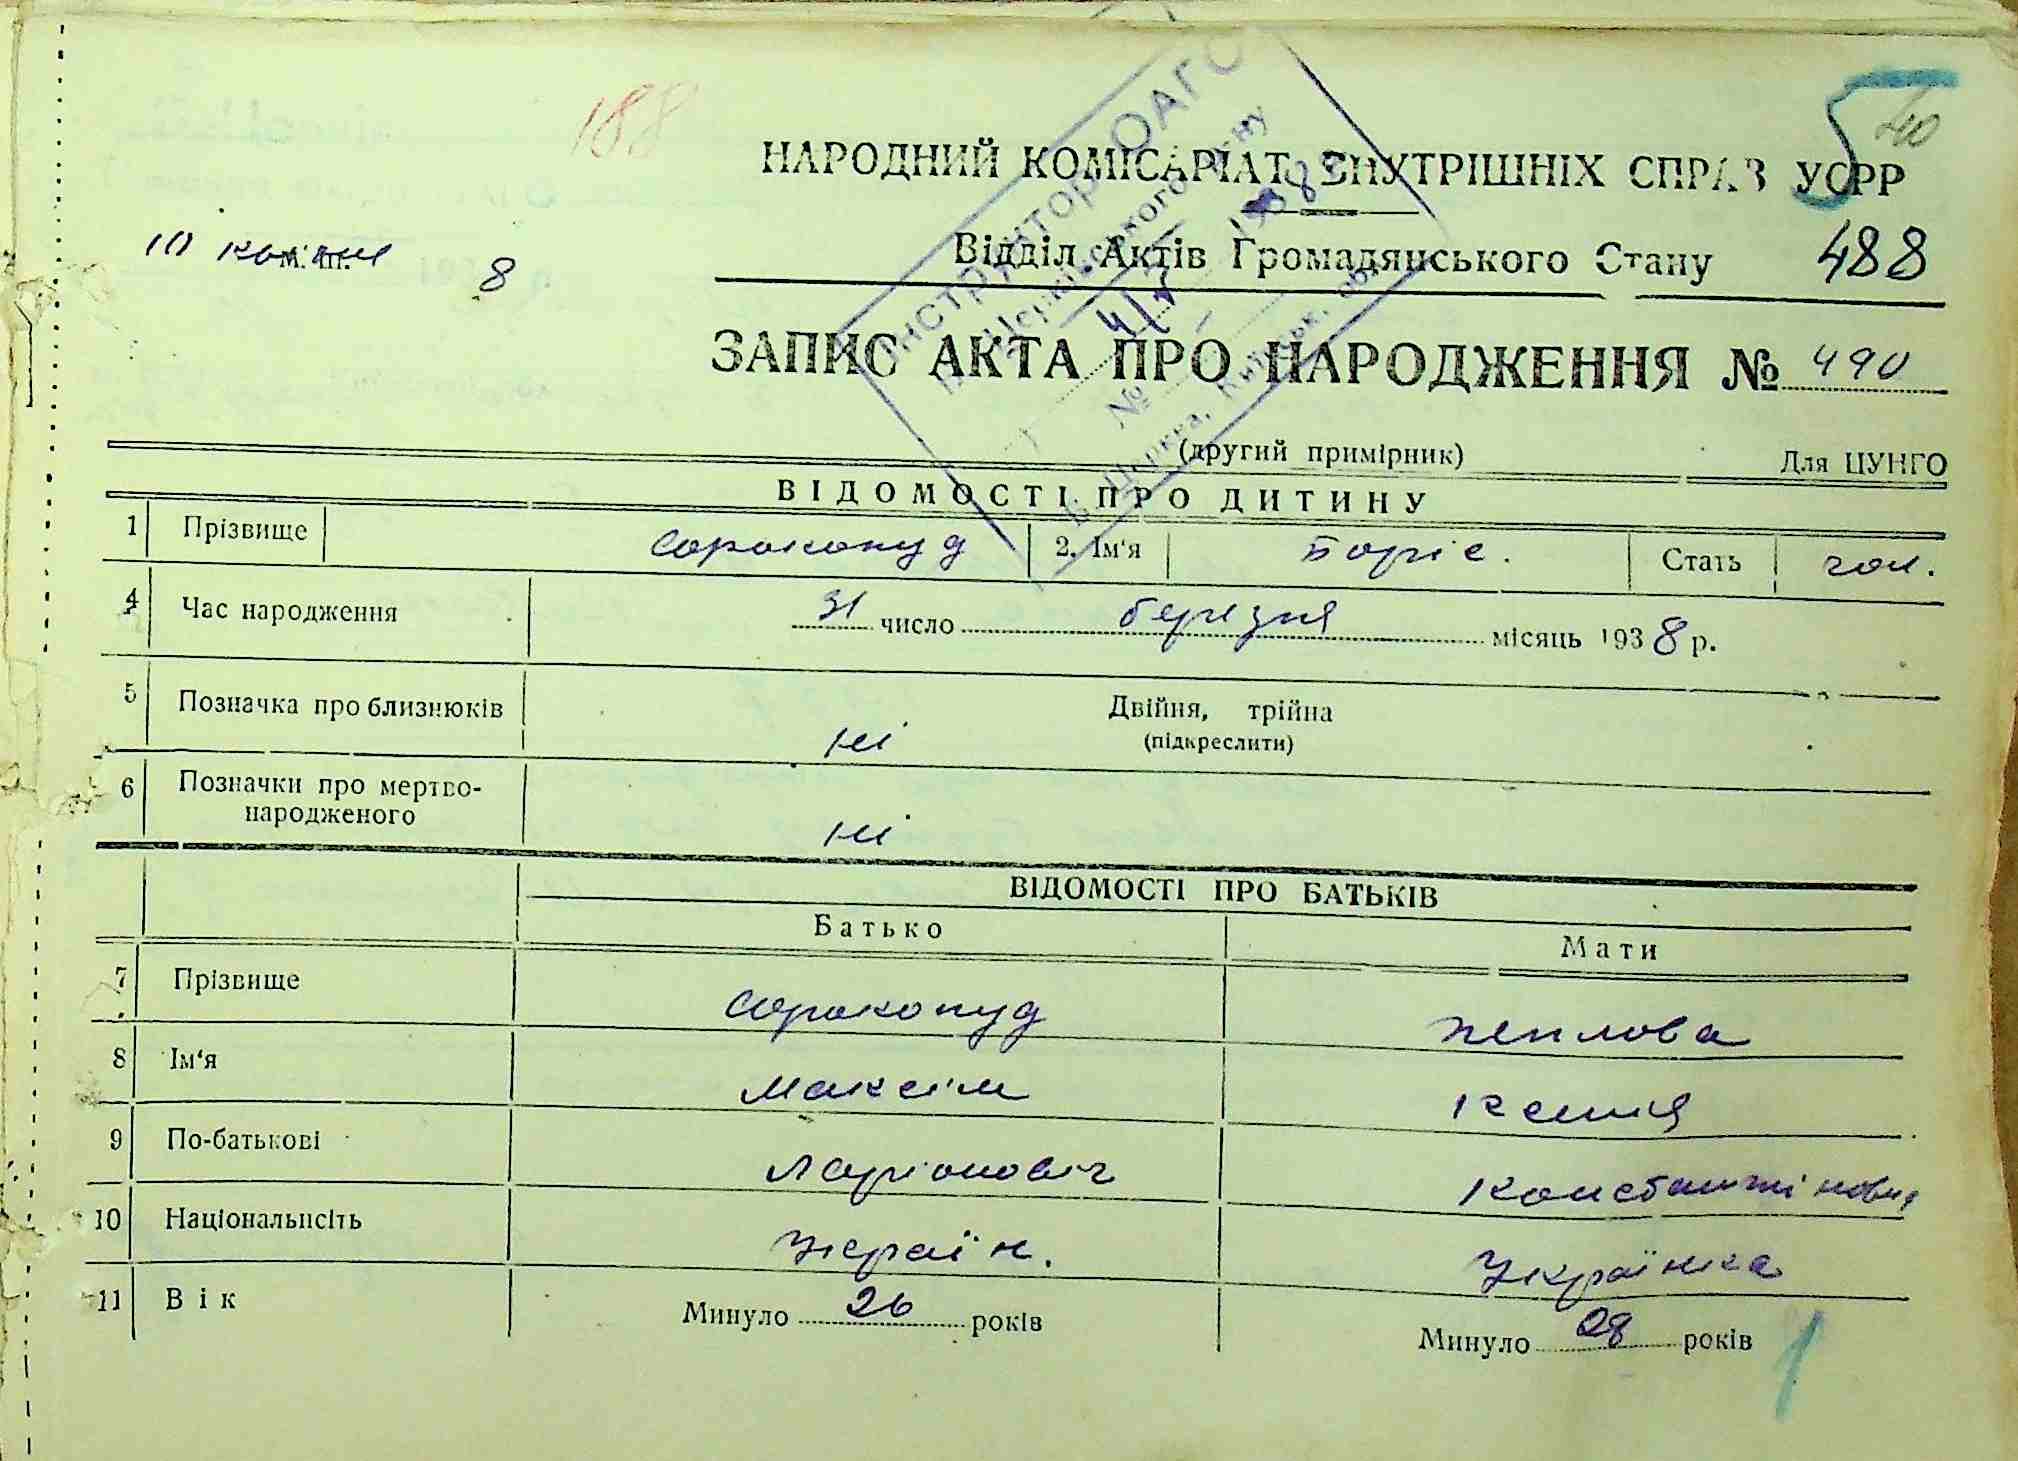 188
40
НАРОДНИЙ КОМІСАРІАТ ВНУТРІШНІХ СПРАВ УСРР
М. П. 8
Відділ Актів Громадянського Стану 488
ЗАПИС АКТА ПРО НАРОДЖЕННЯ № 490
(другий примірник) Для ЦУНГО
ВІДОМОСТІ ПРО ДИТИНУ
1 Прізвище Сорокопуд 2. Ім'я Боріс. Стать чол.
4 Час народження 31 число березня місяць 1938 р.
5 Позначка про близнюків ні Двійня, трійна
(підкреслити)
6 Позначки про мертво-
народженого ні
ВІДОМОСТІ ПРО БАТЬКІВ
Батько Мати
7 Прізвище Сорокопуд Теплова
8 Ім'я Максім Ксенія
9 По-батькові Ларіоновіч Константіновна
10 Національність Україн. Українка
11 Вік Минуло 26 років Минуло 28 років
1